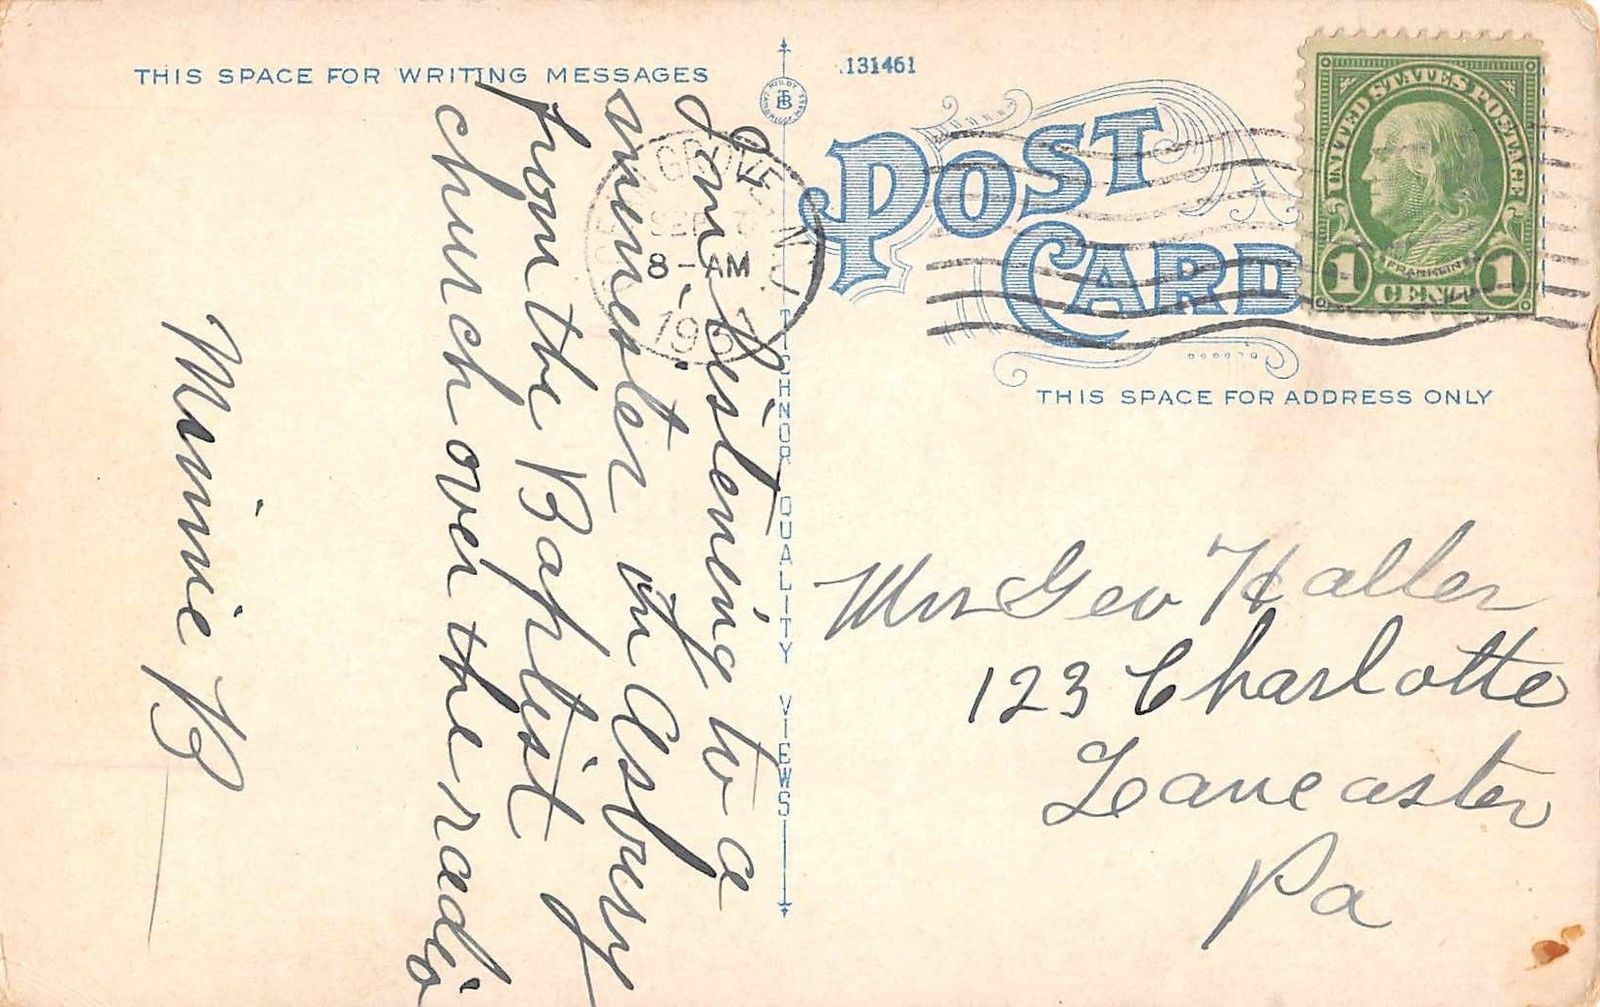 THIS SPACE FOR WRITING MESSAGES
I'm Listening to a
minester in Asbury
from the Baptist
church over the radio
Minnie B
TICHNOR QUALITY VIEWS
131461
POST
CARD
UNITED STATES POSTAGE
FRANKLIN
1 CENT 1
GROVE N.J.
SEP
8-AM
THIS SPACE FOR ADDRESS ONLY
Mrs Geo Haller
123 Charlotte
Lancaster
Pa